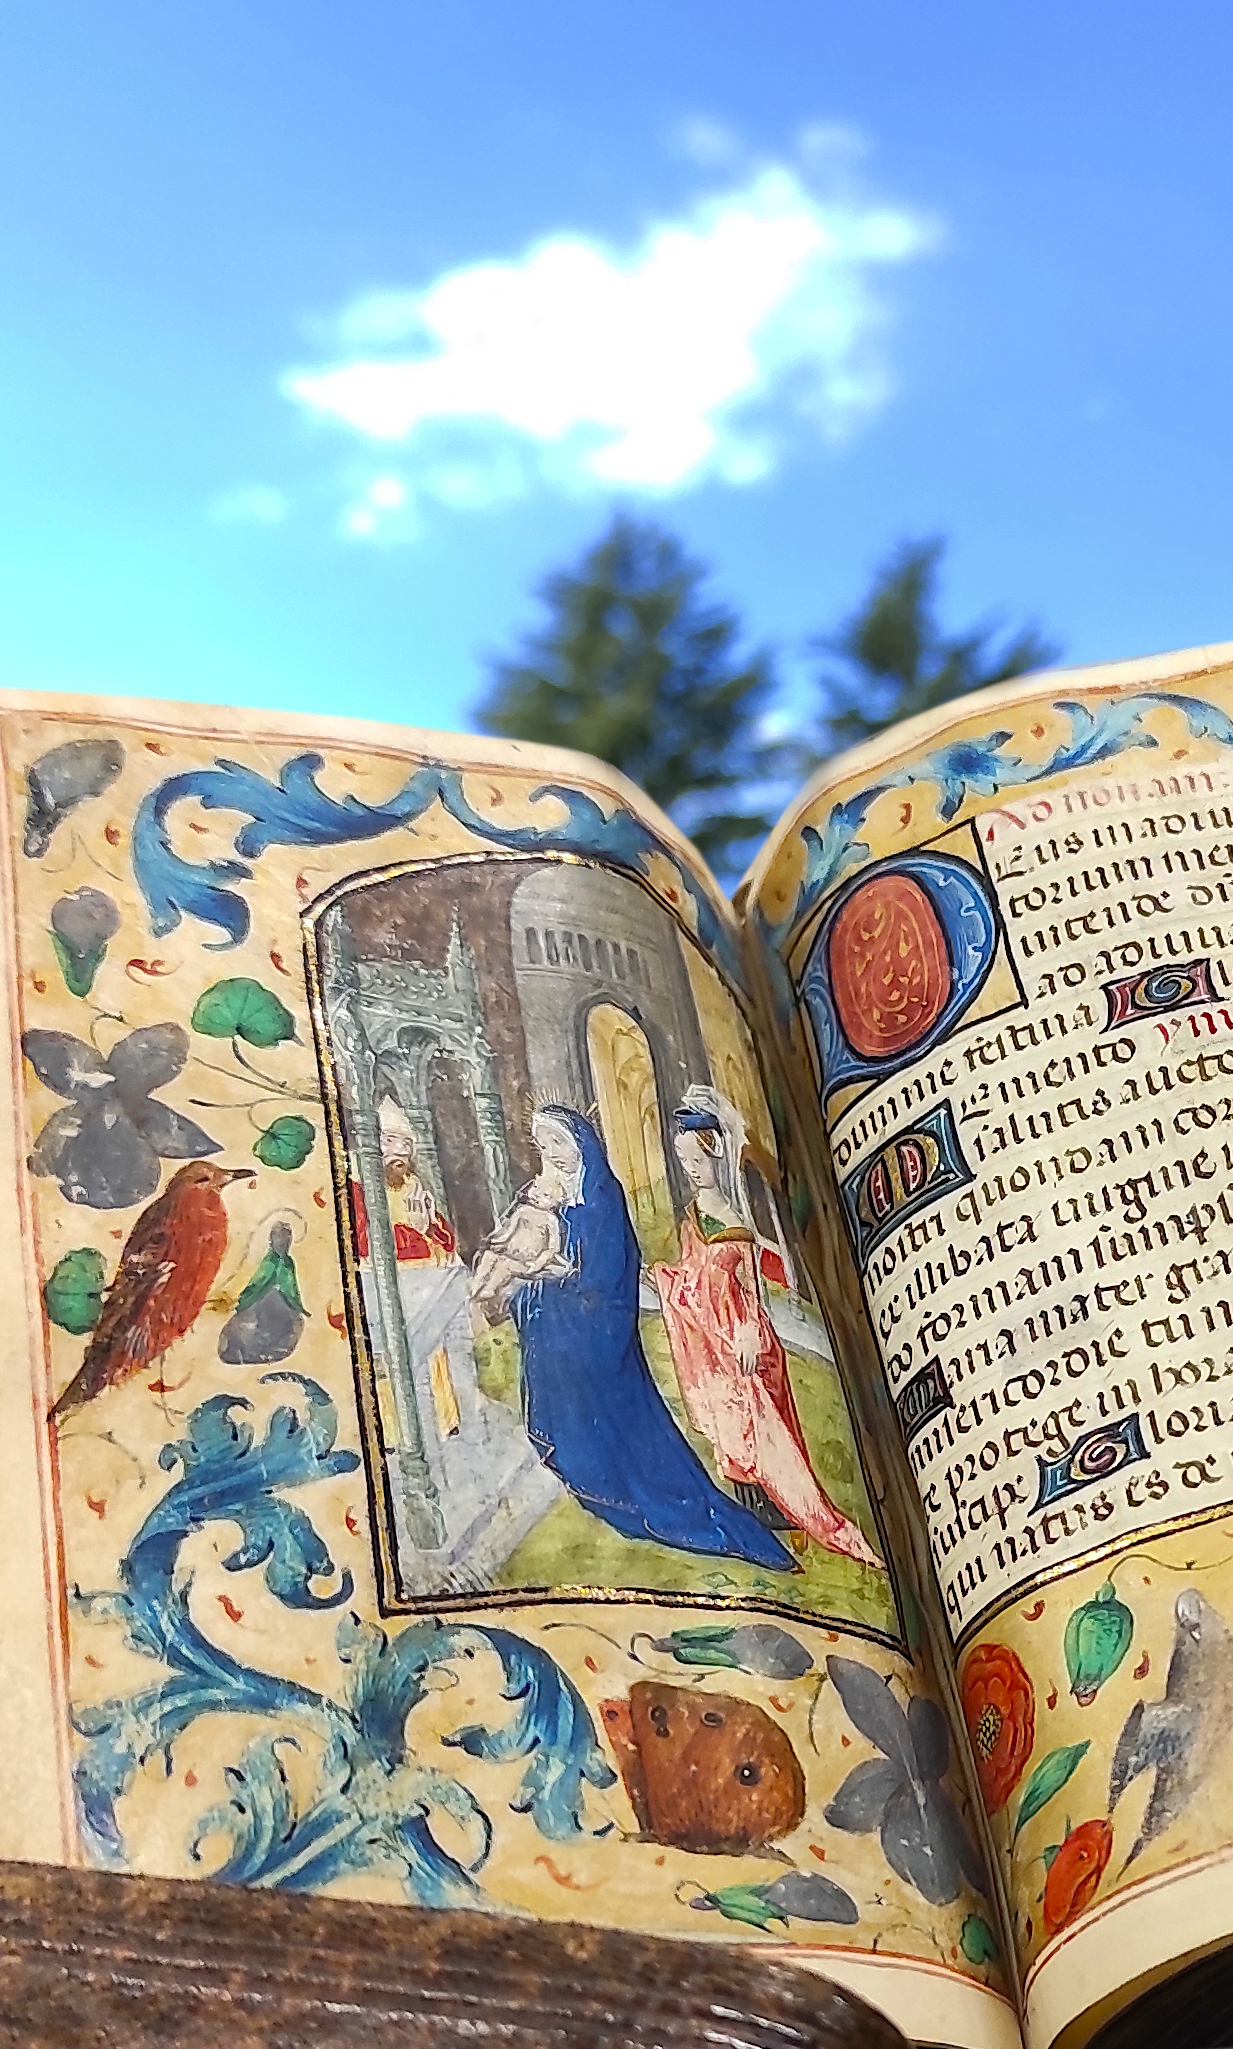 Ad nonam
Eus in adiu
torium meu
intende dn̄
ad adiuua
dum me festina G
Emento ym
salutis aucto
nostri quondam cor
ex illibata uirgine
do formam sumpse
aria mater gra
misericordie tu n
te protege in hora
suscipe Glori
qui natus es de